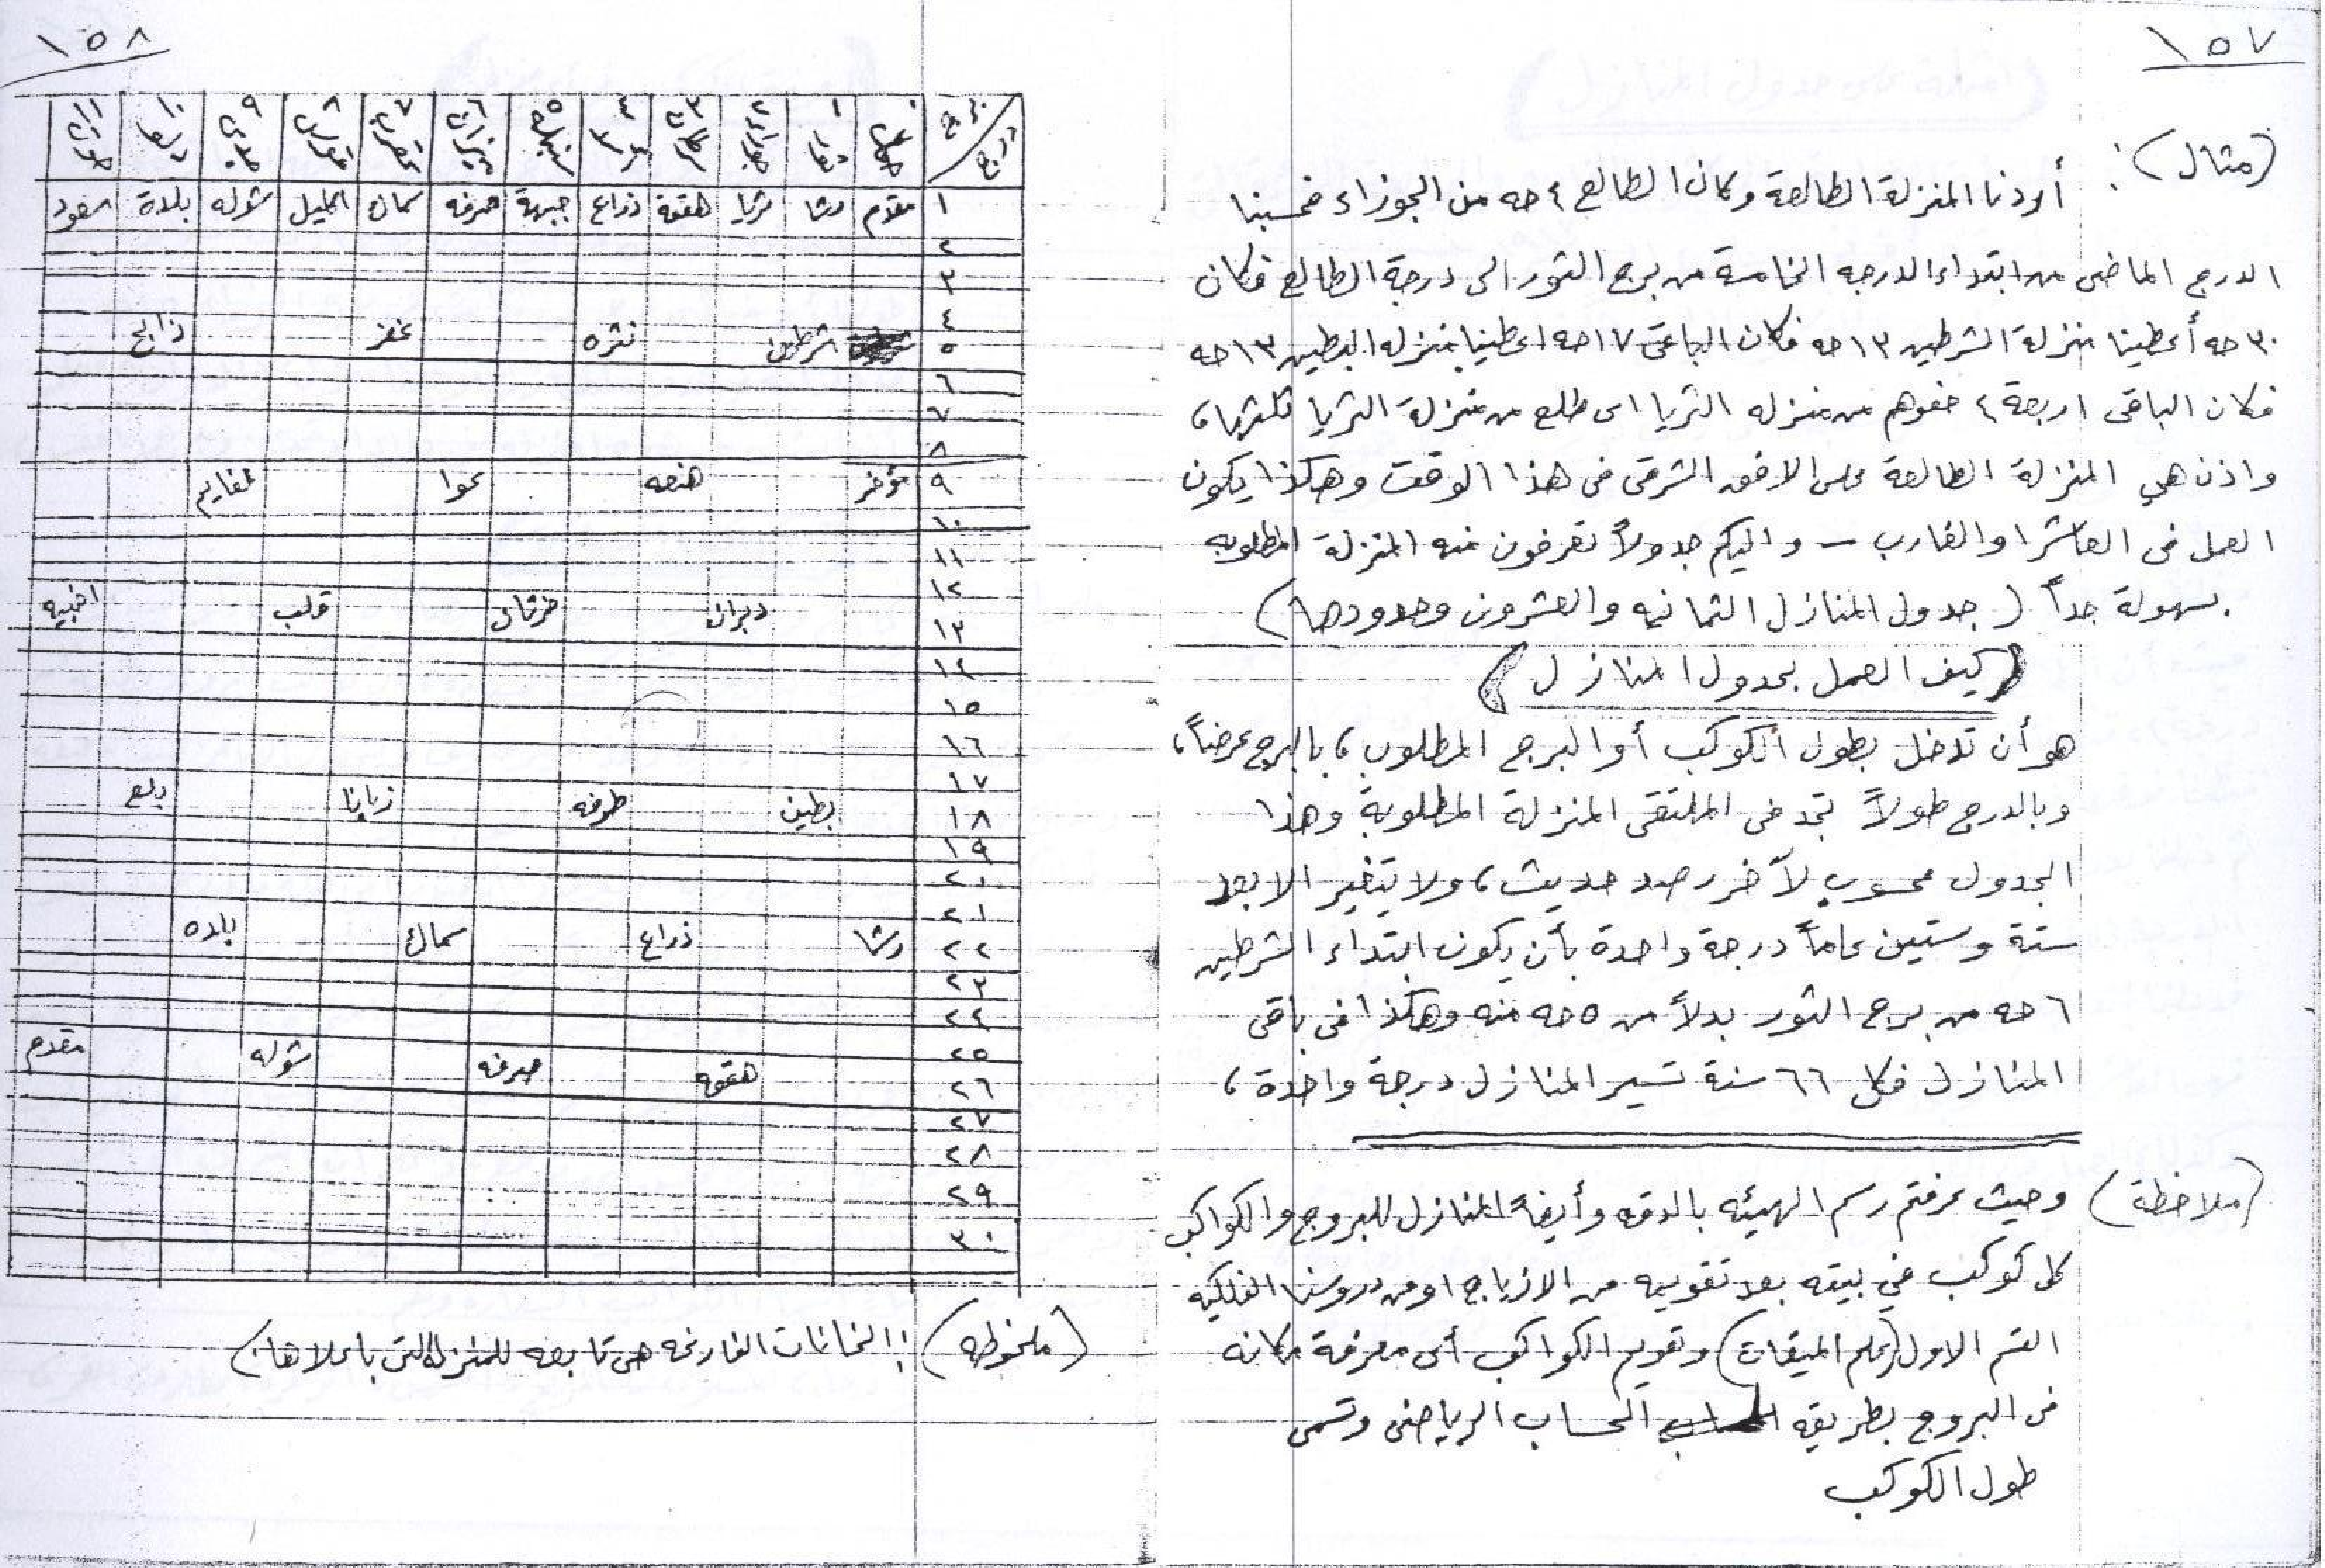 ١٥٧
(مثال): أردنا المنزلة الطالعة وكان الطالع ٤حه من الجوزاء فحسبنا
الدرج الماضى من ابتداء الدرجه الخامسة من برج الثور الى درجة الطالع فكان
٣٠حه أعطينا منزلة الشرطين ١٣حه فكان الباقى ١٧حه اعطينا منزله البطين ١٣حه
فكان الباقى اربعة ٤ من منزله الثريا اى طلع من منزلة الثريا ثلثها،
واذن هي المنزلة الطالعة على الافق الشرقى فى هذا الوقت وهكذا يكون
العمل فى العاشر والغارب - واليكم جدولاً تعرفون منه المنزلة المطلوبه
بسهولة جداً (جدول المنازل الثمانيه والعشرون وحدودها)
(كيف العمل بجدول المنازل)
هو أن تدخل بطول الكوكب أو البرج المطلوب، بالبرج عرضاً،
وبالدرج طولاً تجد فى الملتقى المنزلة المطلوبة وهذا
الجدول محسوب لآخر رصد حديث، ولا يتغير الا بعد
ستة وستين عاماً درجة واحدة بأن يكون ابتداء الشرطين
٦حه من برج الثور بدلاً من ٥حه منه وهكذا فى باقى
المنازل فكل ٦٦ سنة تسير المنازل درجة واحدة،
(ملاحظة) وحيث عرفتم رسم الهيئه بالدقه وأيضاً المنازل للبروج والكواكب
كل كوكب في بيته بعد تقويمه من الازياج او من دروسنا الفلكيه
القسم الاول (علم الميقات) وتقويم الكواكب أى معرفة مكانه
فى البروج بطريقه الحساب الرياضى وتسمى
طول الكوكب
١٥٨
برج درج ٠ حمل ١ ثور ٢ جوزاء ٣ سرطان ٤ ٥ سنبله ٦ ميزان ٧ عقرب ٨ قوس ٩ جدى ١٠ دلو ١١ حوت
١ مقدم رشا ثريا هقعة ذراع جبهة صرفه سماك اكليل شوله بلدة سعود
٢
٣
٤
٥ شرطين نثره غفر ذابح
٦
٧
٨
٩ مؤخر هنعه عوا نعايم
١٠
١١
١٢
١٣ دبران خرتان قلب اخبيه
١٤
١٥
١٦
١٧
١٨ بطين طرفه زبانا بلع
١٩
٢٠
٢١
٢٢ رشا ذراع سماك بلده
٢٣
٢٤
٢٥
٢٦ هقعه صرفه شوله مقدم
٢٧
٢٨
٢٩
٣٠
(ملحوظه): الخانات الفارغه هى تابعه للمنزلة التى باعلاها)